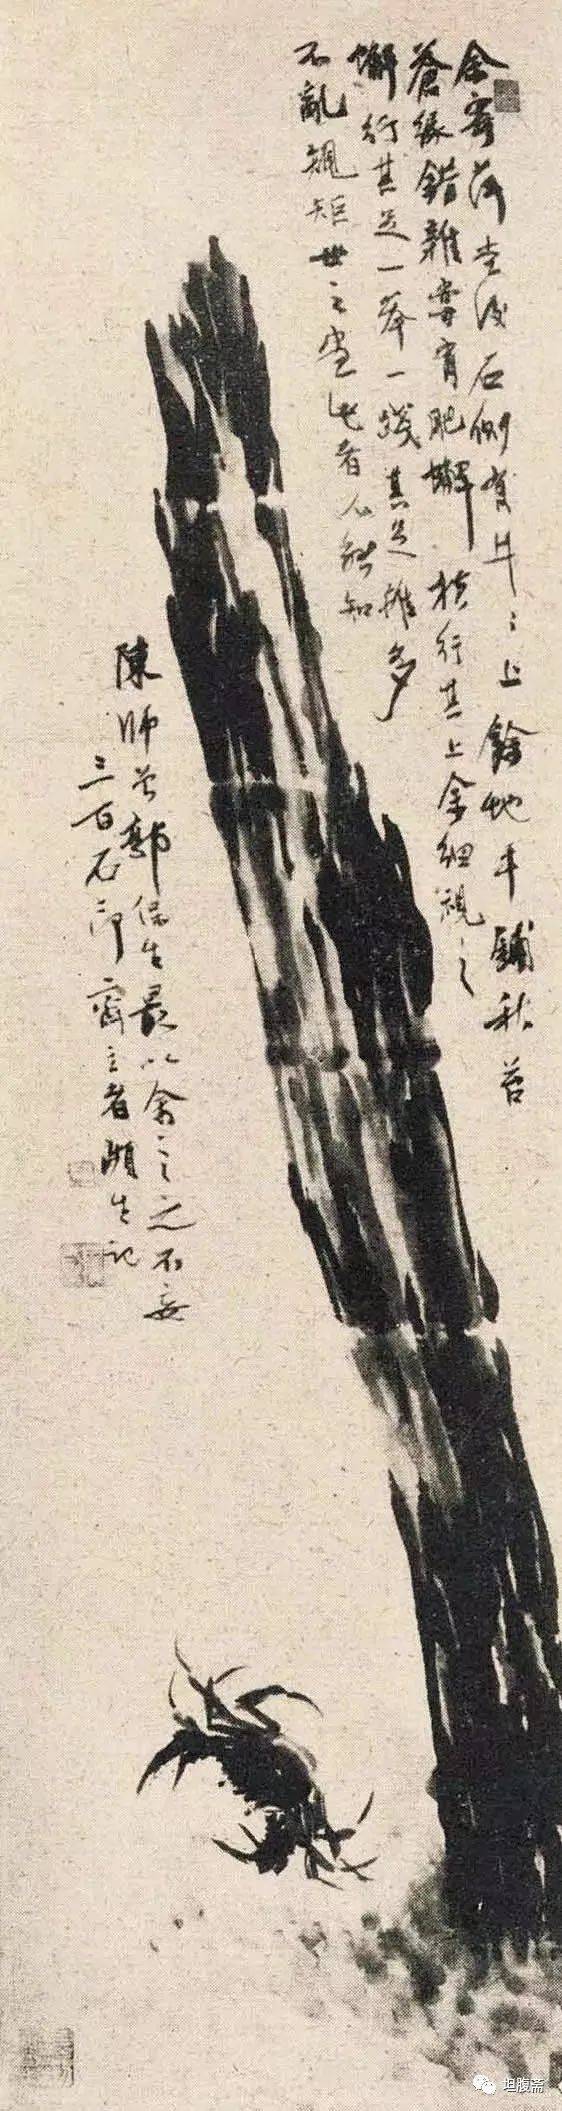 余寄萍堂後石側有井〻上餘地平鋪秋苔
蒼綠錯雜嘗有肥蟹橫行其上余細視之
蟹行其足一舉一踐其足雖多
不亂規矩世之畫此者不能知
陳師曾郭葆生最以余之言不妄
三百石印齋主者瀕生記
坦腹斋